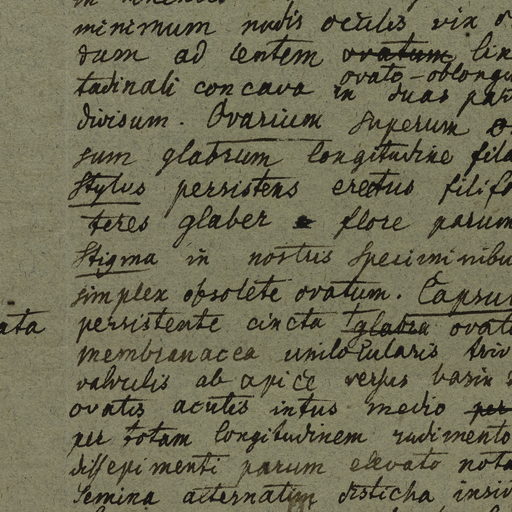 minimum nudis oculis vix
dum ad lentem ovatum lin
ovato-oblongu
tudinali concava in duas par
divisum. Ovarium superum
sum glabrum longitudine fila
Stylus persistens erectus filifo
teres glaber flore parum
Stigma in nostris speciminibu
simplex obsolete ovatum. Capsu
ata
persistente cincta glabra ovat
membranacea unilocularis triv
valvulis ab apice versus basin
ovatis acutis intus medio per
per totam longitudinem rudimento
dissepimenti parum elevato nota
Semina alternatim disticha inser